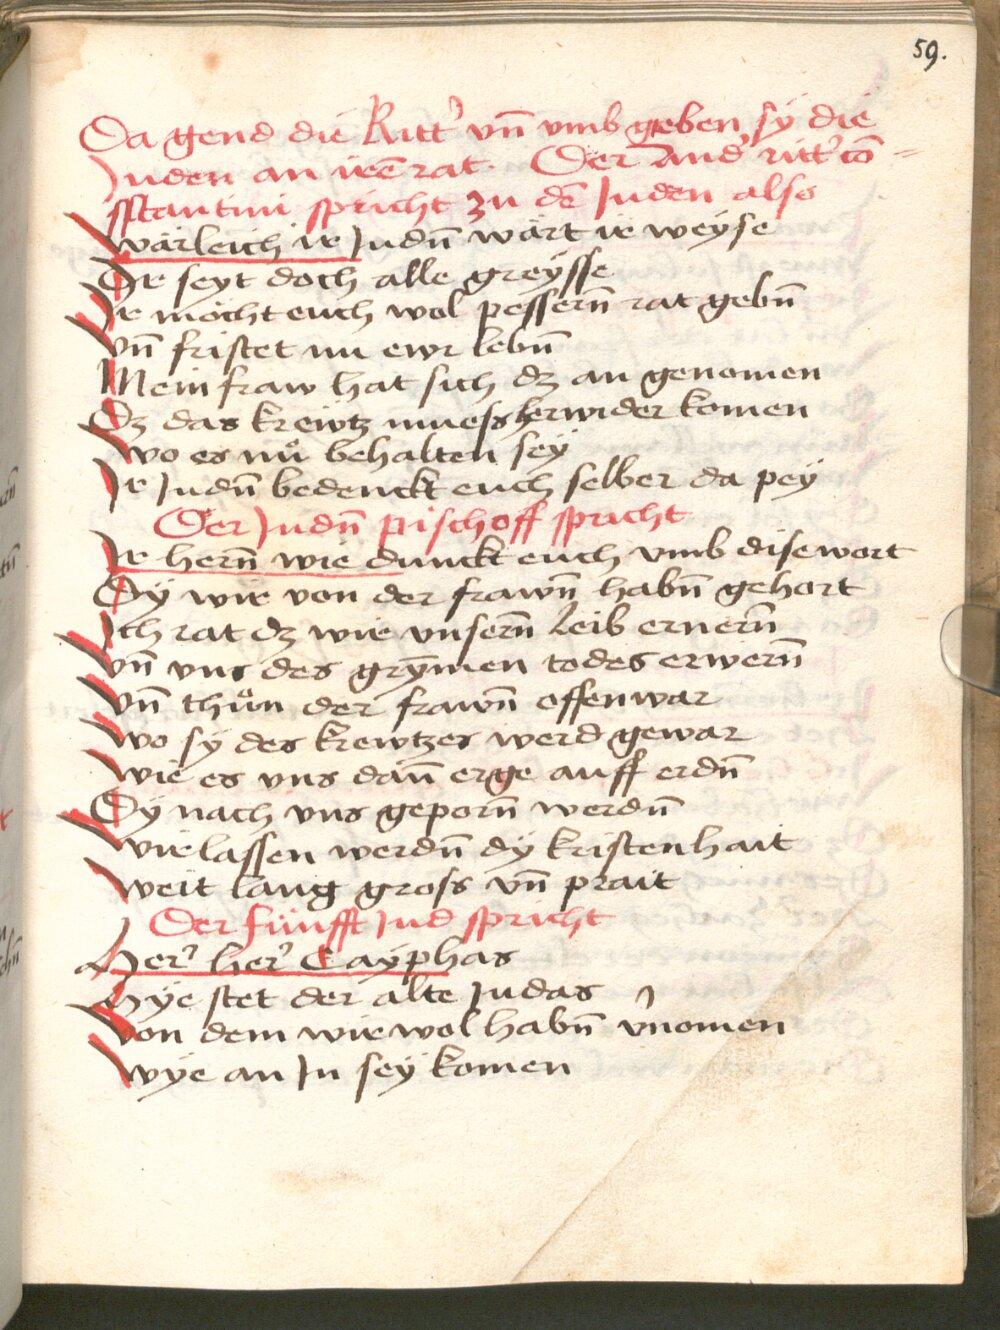 59.
Da gend die Ritt' vn̄ vmb geben sÿ die
Juden an irē rat. Der And' ritt' cō=
sstantini spricht zu dē Juden also
Wärleich ir Judn̄ wärt ir weÿse
Ir seyt doch alle greÿsse
Ir möcht euch wol pessern̄ rat gebn̄
Vn̄ fristet nu ewr lebn̄
Mein fraw hat sich dz an genomen
Dz das krewtz muess herwider komen
Wo es nů behalten seÿ
Ir Judn̄ bedenckt euch selber da peÿ
Der Judn̄ pischoff spricht
Ir hern̄ wie dunckt euch vmb dise wort
Dÿ wir von der frawn̄ habn̄ gehort
Ich rat dz wir vnsern̄ leib ernern̄
Vn̄ vns des grÿmen todes erwern̄
Vn̄ thůn der frawn̄ offenwar
Wo sÿ des krewtzes werd gewar
Wie es vns dan̄ erge auff erdn̄
Dÿ nach vns geporn̄ werdn̄
Wir lassen werdn̄ dÿ kristenhait
Weit lang gross vn̄ prait
Der fünfft Jud spricht
Her' her' Cayphas
Hÿe stet der alte Judas
Von dem wir wol habn̄ v'nomen
Wÿe an Jn seÿ komen